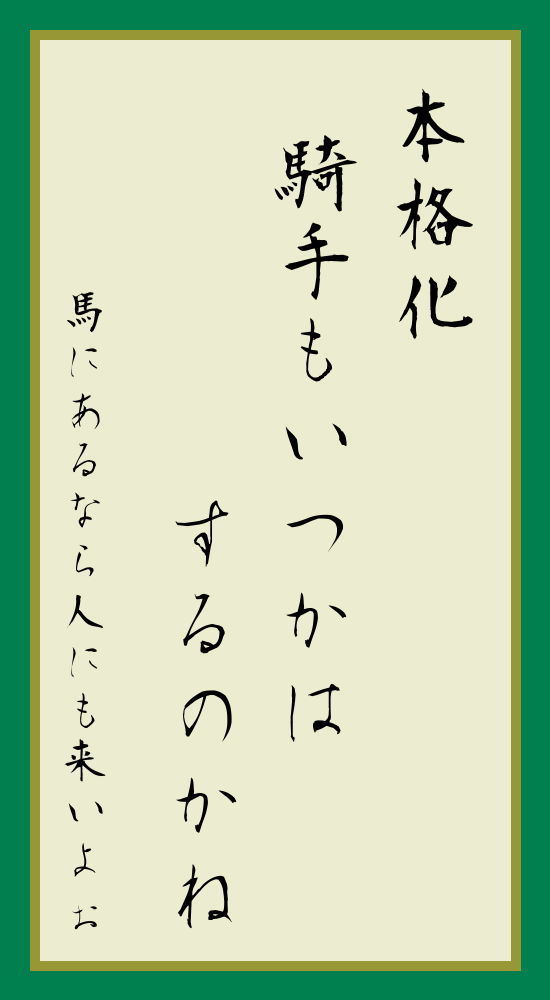 本格化
騎手もいつかは
するのかね
馬にあるなら人にも来いよぉ